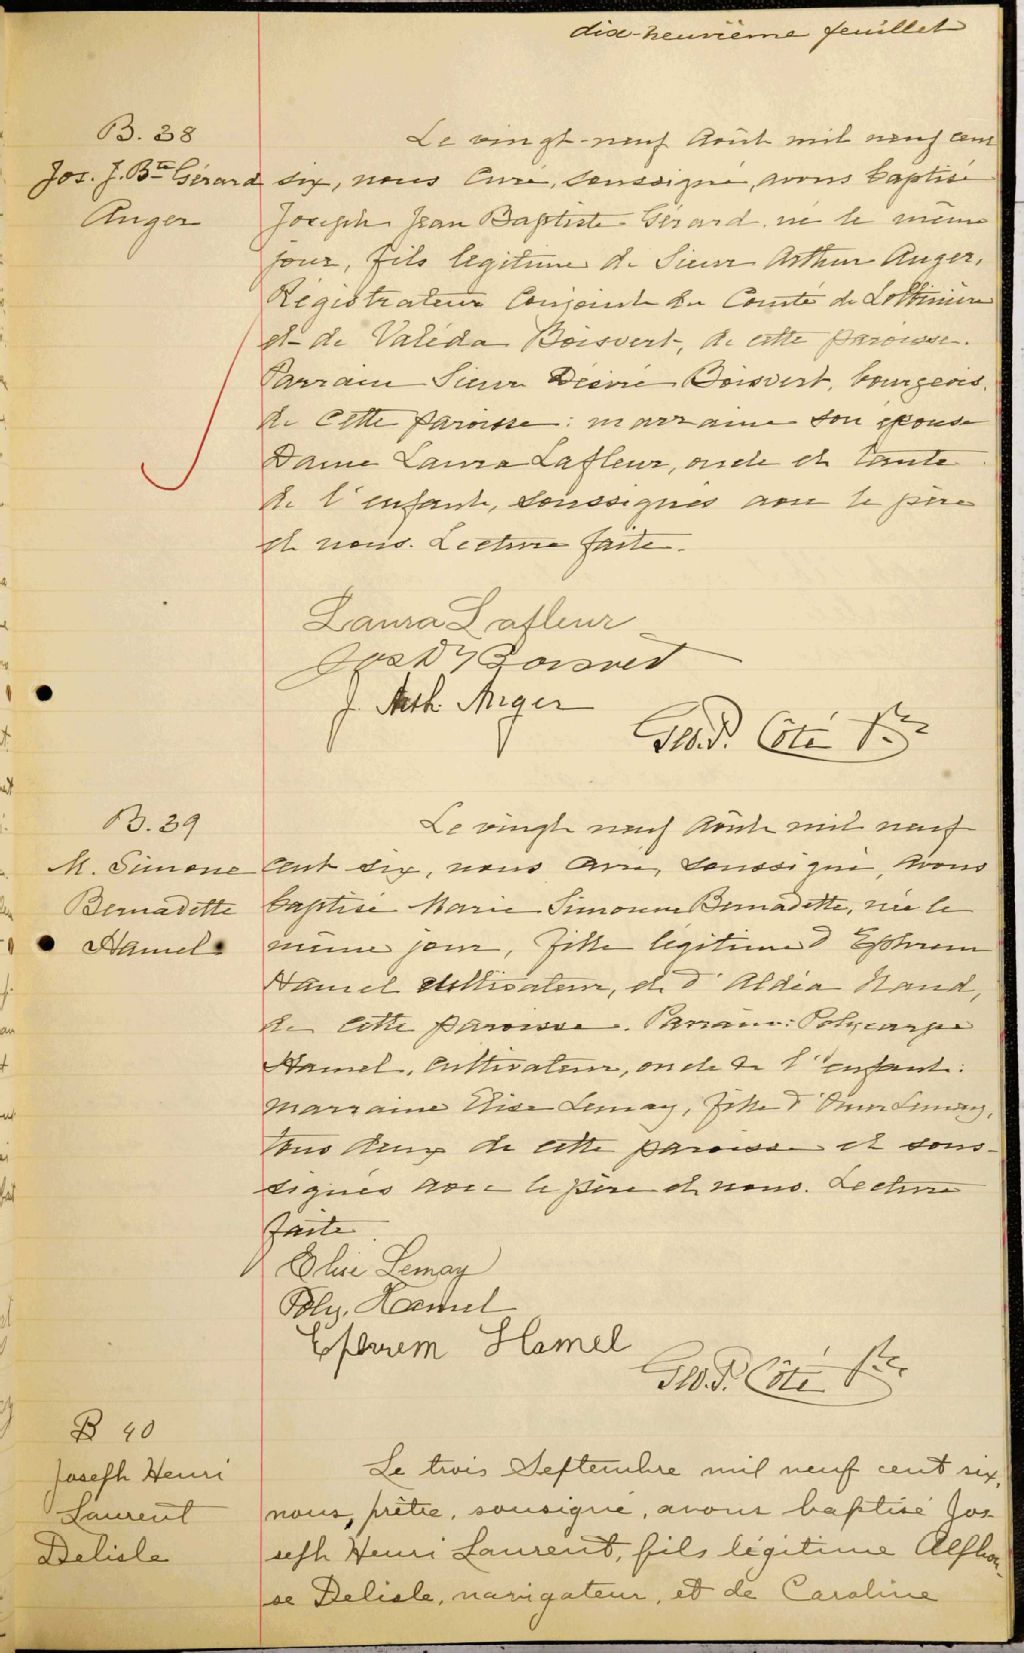 dix-neuvième feuillet
B. 38
Jos. J. Bte Gérard
Anger
Le vingt-neuf Août mil neuf cent
six, nous Curé, soussigné, avons baptisé
Joseph Jean Baptiste Gérard né le même
jour, fils légitime de Sieur Arthur Auger,
Régistrateur Conjoint du Comté de Lotbinière
et de Valéda Boisvert, de cette paroisse.
Parrain Sieur Désiré Boisvert, bourgeois,
de cette paroisse : marraine son épouse
Dame Laura Lafleur, oncle et tante
de l'enfant, soussignés avec le père
et nous. Lecture faite.
Laura Lafleur
Jos D Boisvert
J. Arth. Anger
Geo. P. Côté Ptre
B. 39
M. Simone
Bernadette
Hamel
Le vingt neuf Août mil neuf
cent six, nous Curé, soussigné, avons
baptisé Marie Simonne Bernadette, née le
même jour, fille légitime d'Ephrem
Hamel cultivateur, et d'Aldéa Naud,
de cette paroisse. Parrain : Polycarpe
Hamel, cultivateur, oncle de l'enfant :
marraine Elise Lemay, fille d'Omer Lemay,
tous deux de cette paroisse et sous-
signés avec le père et nous. Lecture
faite
Elise Lemay
Poly. Hamel
Ephrem Hamel
Geo. P. Côté Ptre
B 40
Joseph Henri
Laurent
Delisle
Le trois Septembre mil neuf cent six,
nous, prêtre, sousigné, avons baptisé Jos
seph Henri Laurent, fils légitime Alphon-
se Delisle, navigateur, et de Caroline